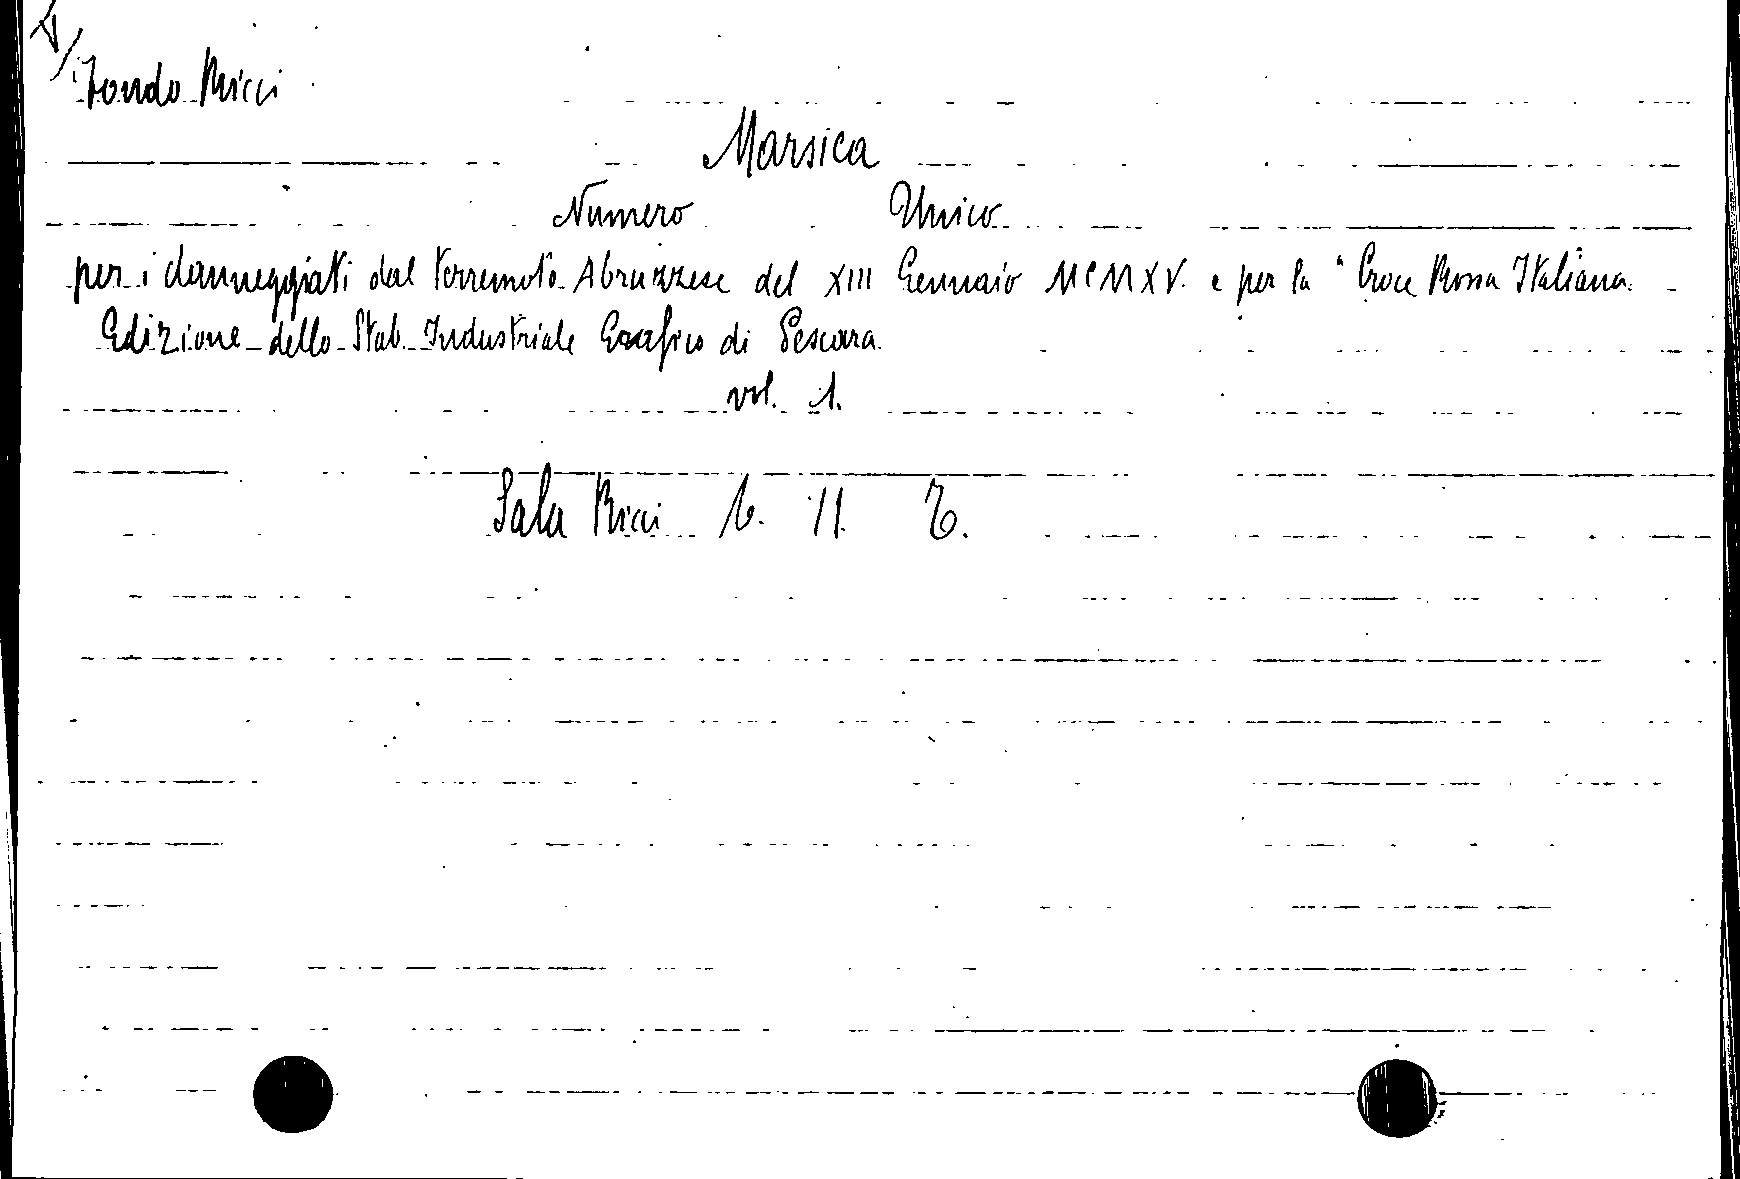 Fondo Ricci
Marsica
Numero Unico
per i danneggiati dal terremoto Abruzzese del XIII Gennaio MCMXV. e per la "Croce Rossa Italiana.
Edizione dello Stab. Industriale Grafico di Pescara.
vol. 1.
Sala Ricci 11.